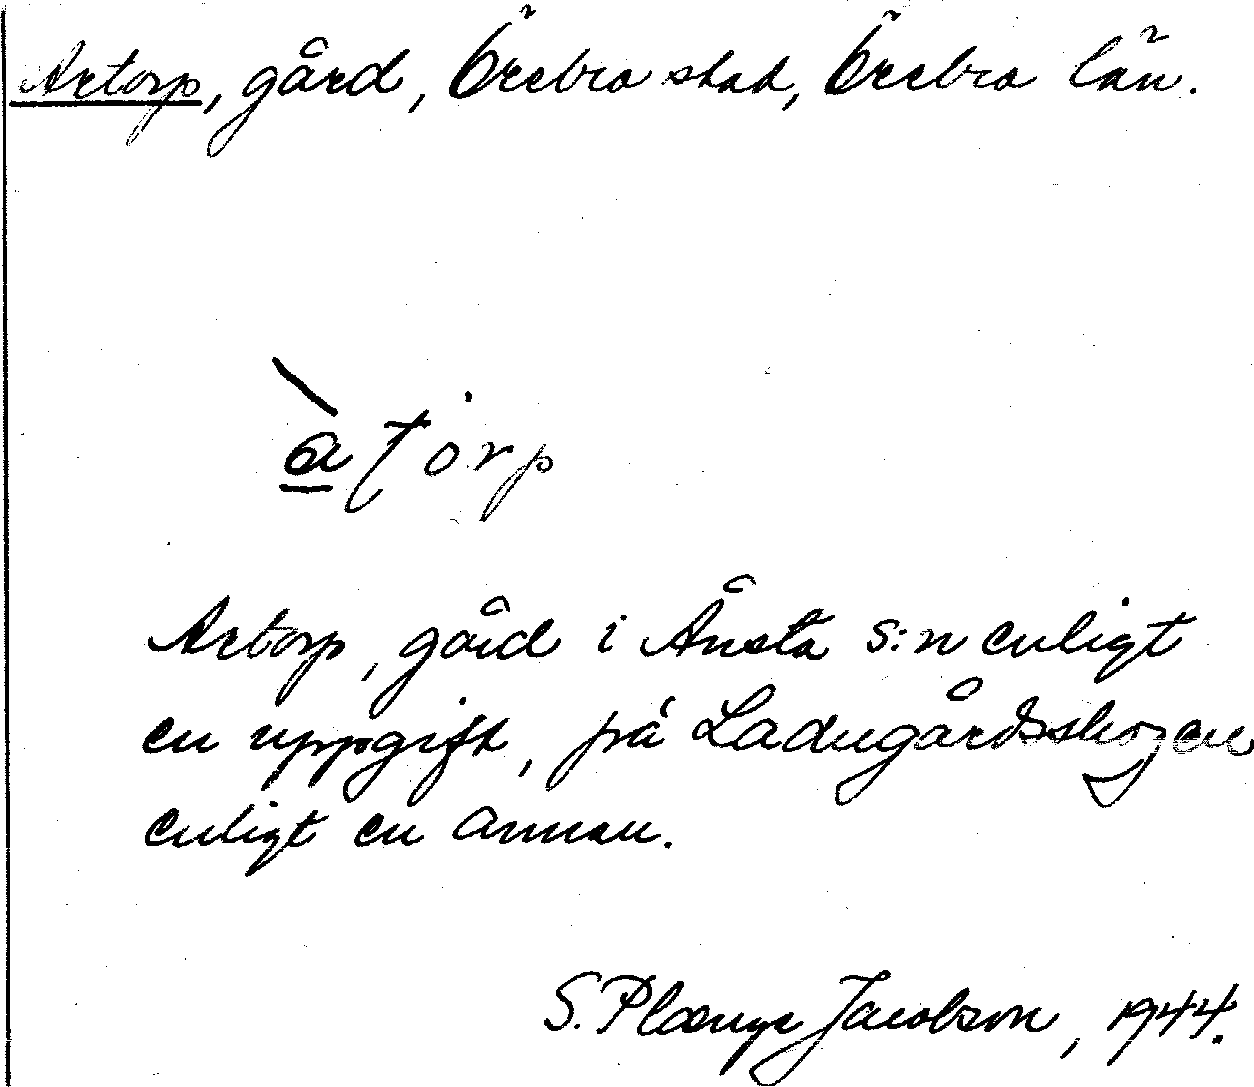 Artorp, gård, Örebro stad, Örebro län.
àtȯrp
Artorp, gård i Ånsta s:n enligt
en uppgift, på Ladugårdsskogen
enligt en annan.
S. Plœnge Jacobson, 1944.